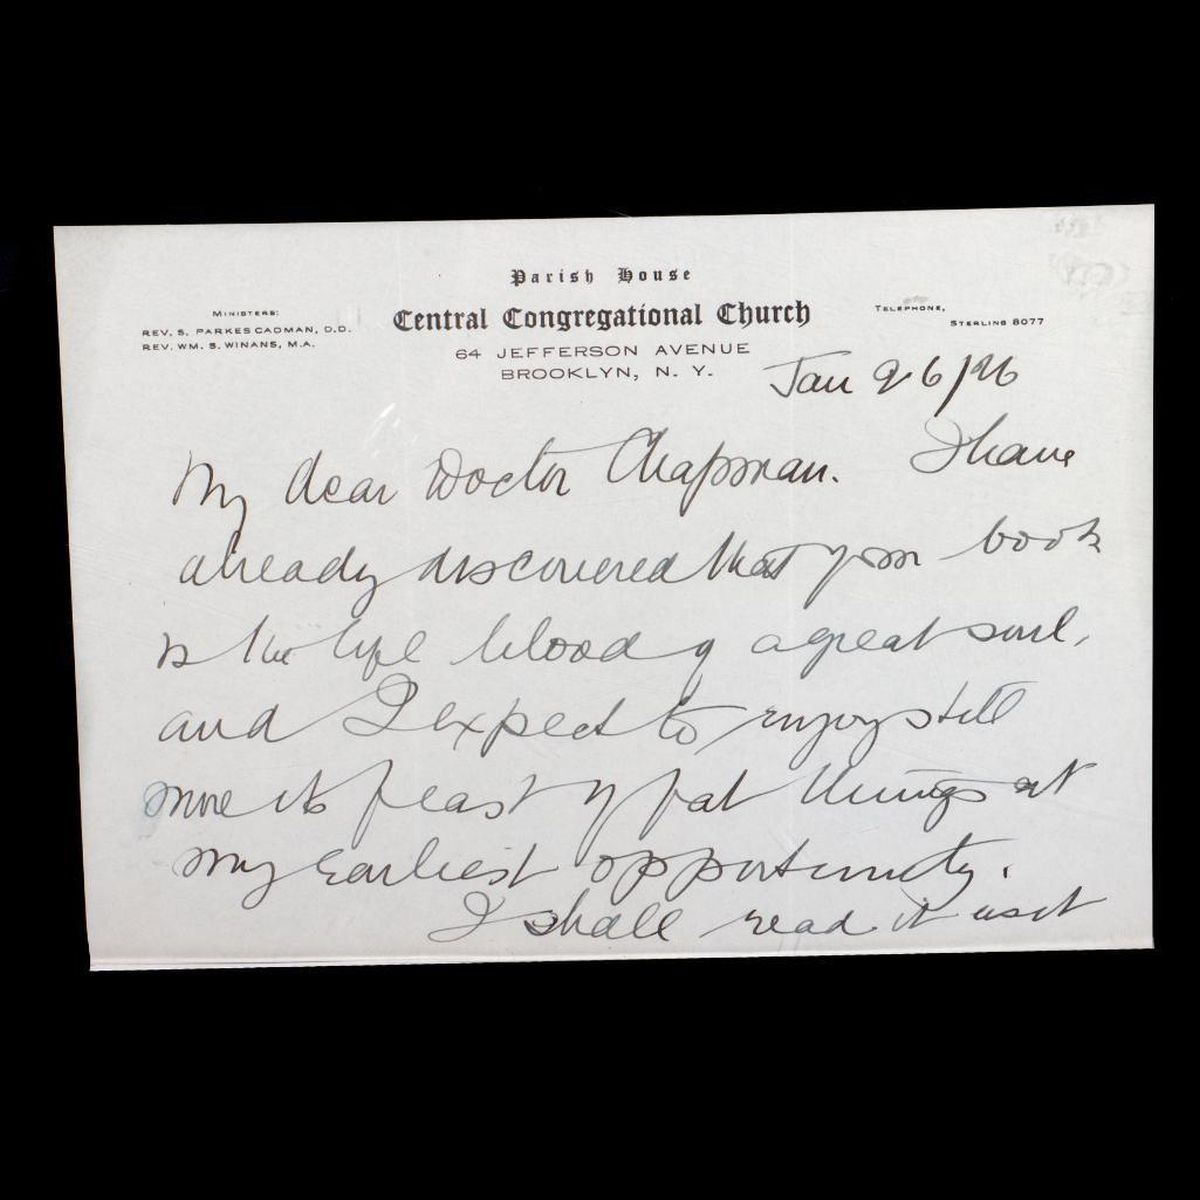 Parish House
Central Congregational Church
64 JEFFERSON AVENUE
BROOKLYN, N. Y.
MINISTERS:
REV. S. PARKES CADMAN, D.D.
REV. WM. S. WINANS, M.A.
TELEPHONE,
STERLING 8077
Jan 26/26
My dear Doctor Chapman. I have
already discovered that your book
is the life blood of a great soul,
and I expect to enjoy still
more its feast of fat things at
my earliest opportunity.
I shall read it